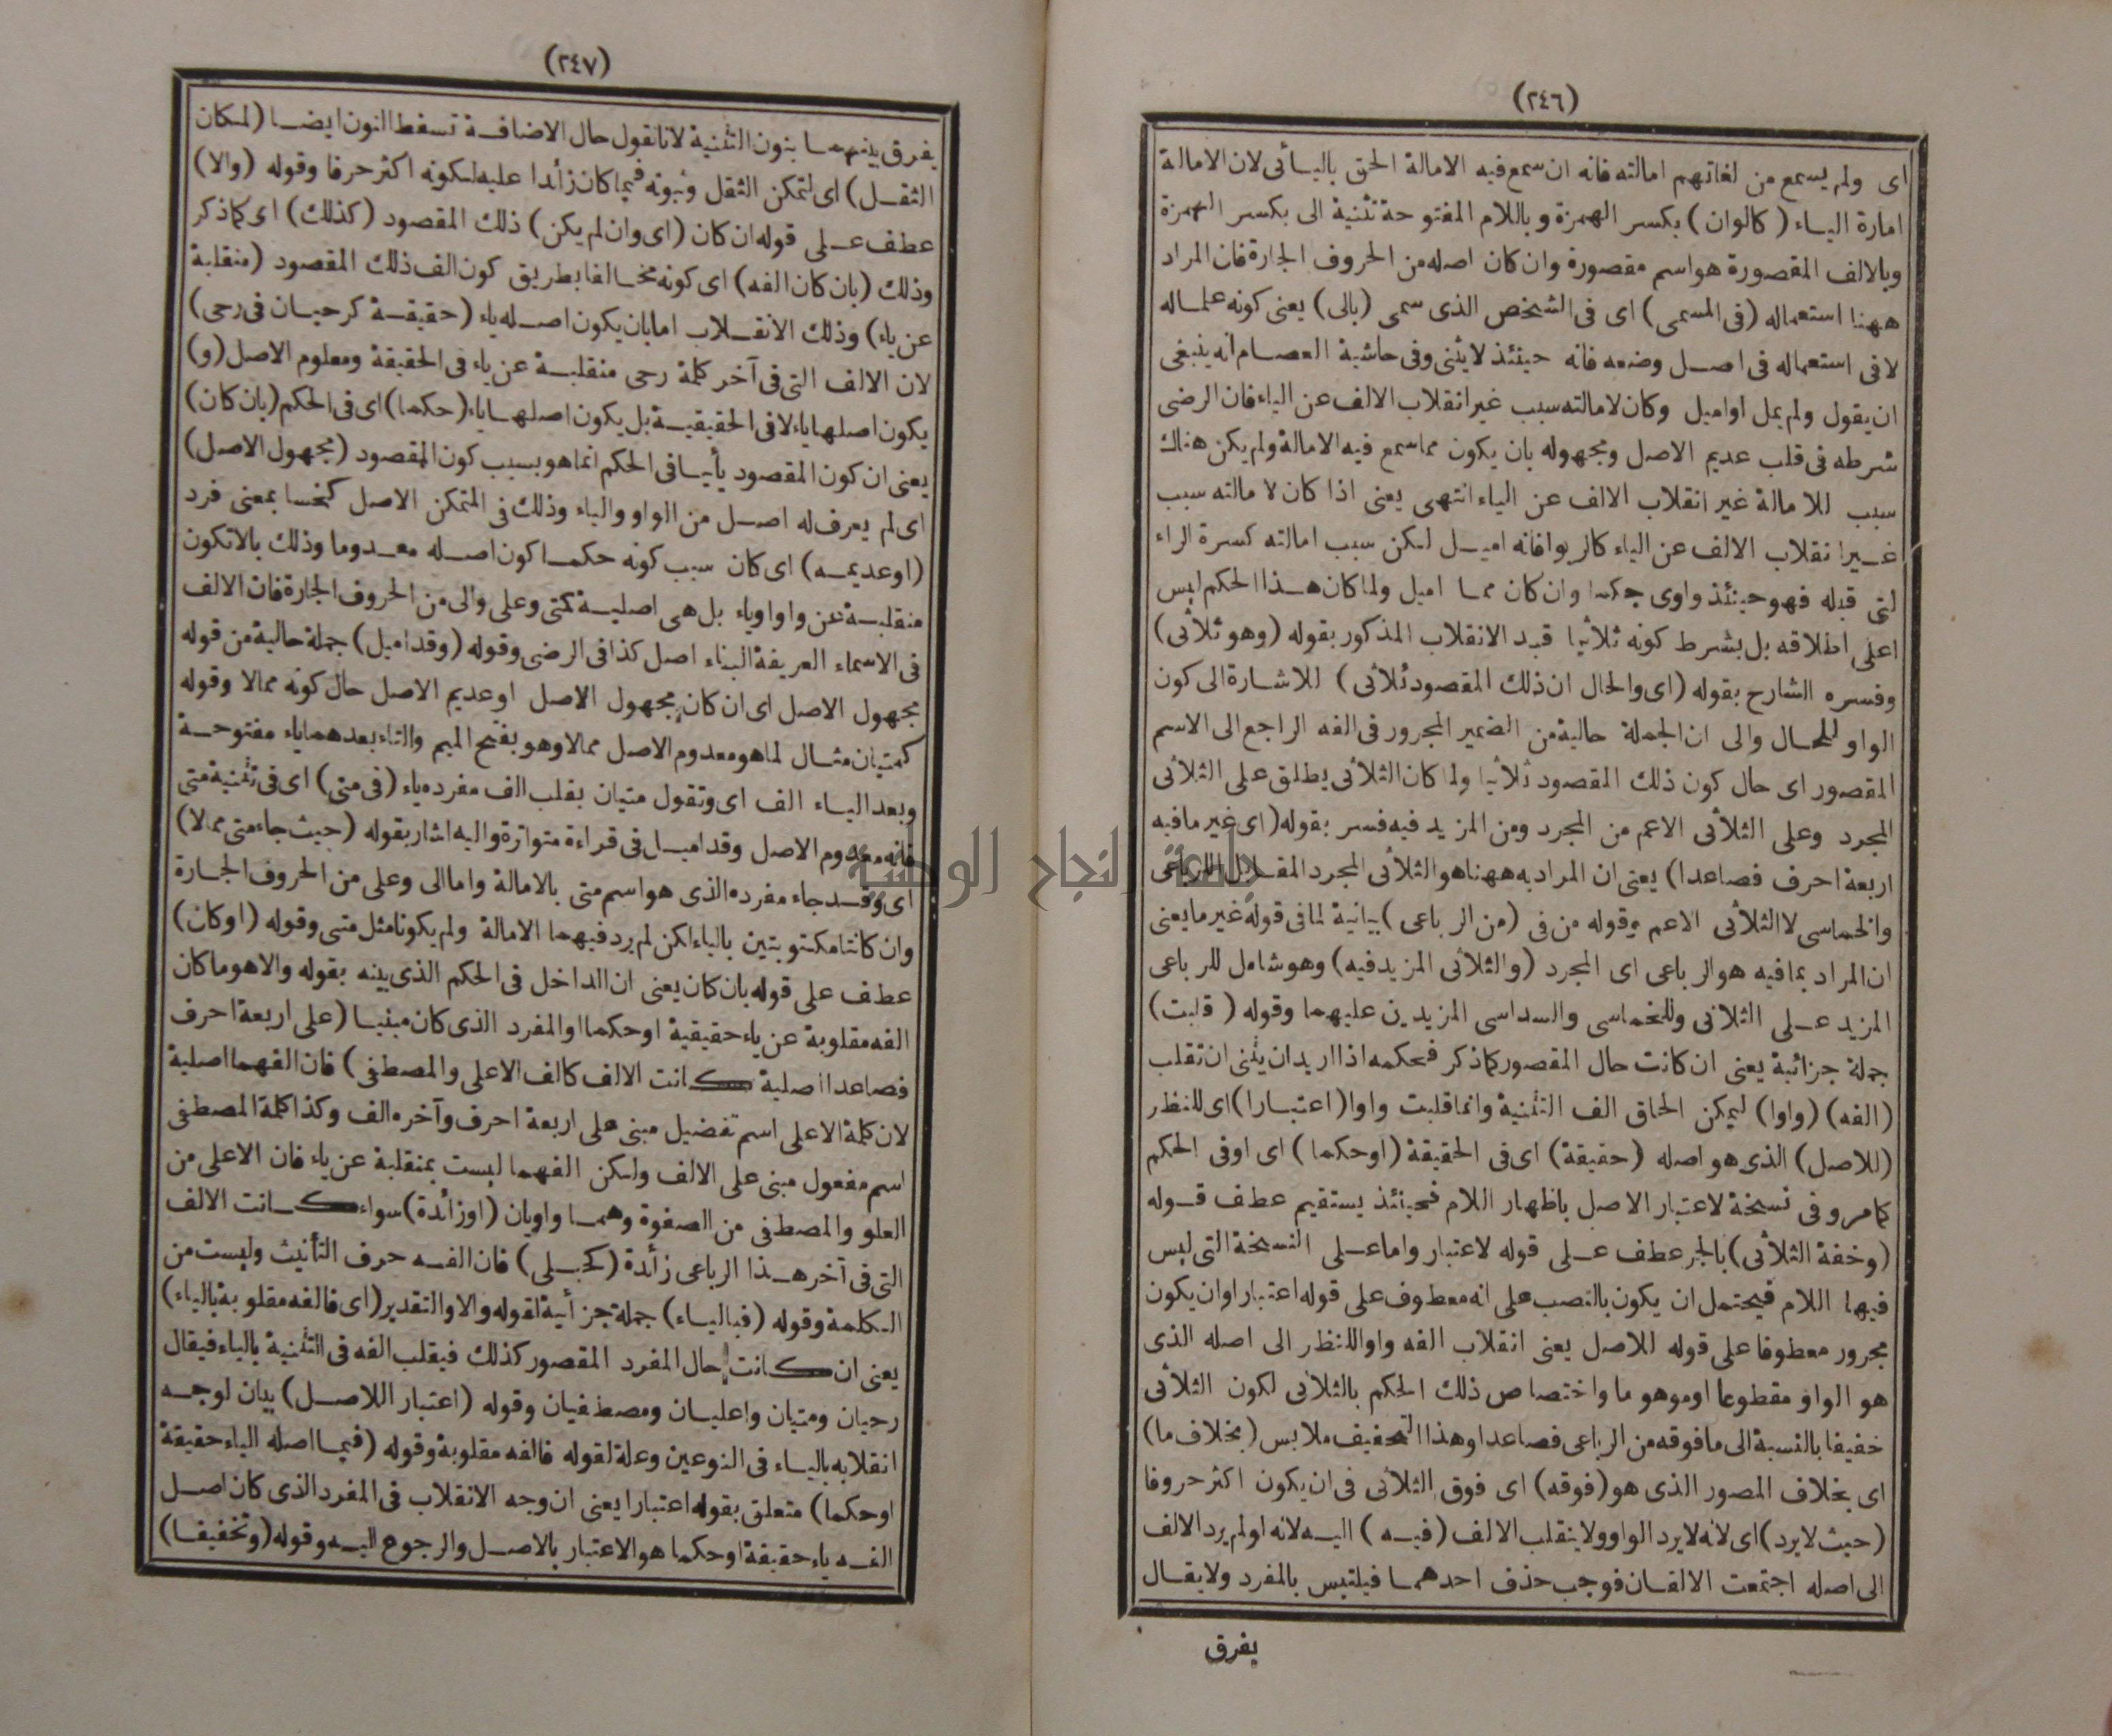 (٢٤٦)
اى ولم يسمع من لغاتهم امالته فانه ان سمع فيه الامالة الحق باليائى لان الامالة
امارة الياء (كالوان) بكسر الهمزة وباللام المفتوحة تثنية الى بكسر الهمزة
وبالالف المقصورة هو اسم مقصورة وان كان اصله من الحروف الجارة فان المراد
ههنا استعماله (فى المسمى) اى فى الشخص الذى سمى (بالى) يعنى كونه علما له
لا فى استعماله فى اصل وضعه فانه حينئذ لا يثنى وفى حاشية العصام انه ينبغى
ان يقول ولم يمل او اميل وكان لامالته سبب غير انقلاب الالف عن الياء فان الرضى
شرطه فى قلب عديم الاصل ومجهوله بان يكون مما سمع فيه الامالة ولم يكن هناك
سبب للامالة غير انقلاب الالف عن الياء انتهى يعنى اذا كان لامالته سبب
غير انقلاب الالف عن الياء كالربوا فانه اميل لكن سبب امالته كسرة الراء
لتى قبله فهو حينئذ واوى حكما وان كان مما اميل ولما كان هذا الحكم ليس
اعلى اطلاقه بل بشرط كونه ثلاثيا قيد الانقلاب المذكور بقوله (وهو ثلاثى)
وفسره الشارح بقوله (اى والحال ان ذلك المقصود ثلاثى) للاشارة الى كون
الواو للحال والى ان الجملة حالية من الضمير المجرور فى الفه الراجع الى الاسم
المقصور اى حال كون ذلك المقصود ثلاثيا ولما كان الثلاثى يطلق على الثلاثى
المجرد وعلى الثلاثى الاعم من المجرد ومن المزيد فيه فسر بقوله (اى غير ما فيه
اربعة احرف فصاعدا) يعنى ان المراد به ههنا هو الثلاثى المجرد المقابل للرباعى
والخماسى لا الثلاثى الاعم وقوله من فى (من الرباعى) بيانية لما فى قوله غير ما يعنى
ان المراد بما فيه هو الرباعى اى المجرد (والثلاثى المزيد فيه) وهو شامل للرباعى
المزيد على الثلاثى وللخماسى والسداسى المزيدين عليهما وقوله (قلبت)
جملة جزائية يعنى ان كانت حال المقصور كما ذكر فحكمه اذا اريد ان يثنى ان تقلب
(الفه) (واوا) ليمكن الحاق الف التثنية وانما قلبت واوا (اعتبارا) اى للنظر
(للاصل) الذى هو اصله (حقيقة) اى فى الحقيقة (او حكما) اى او فى الحكم
كما مر وفى نسخة لاعتبار الاصل باظهار اللام فحينئذ يستقيم عطف قوله
(وخفة الثلاثى) بالجر عطف على قوله لاعتبار واما على النسخة التى ليس
فيها اللام فيحتمل ان يكون بالنصب على انه معطوف على قوله اعتبارا وان يكون
مجرور معطوفا على قوله للاصل يعنى انقلاب الفه واوا للنظر الى اصله الذى
هو الواو مقطوعا او موهوما واختصاص ذلك الحكم بالثلاثى لكون الثلاثى
خفيفا بالنسبة الى ما فوقه من الرباعى فصاعدا وهذا التخفيف ملابس (بخلاف ما)
اى بخلاف المصور الذى هو (فوقه) اى فوق الثلاثى فى ان يكون اكثر حروفا
(حيث لا يرد) اى لانه لا يرد الواو ولا ينقلب الالف (فيه) اليه لانه لو لم يرد الالف
الى اصله اجتمعت الالفان فوجب حذف احدهما فيلتبس بالمفرد ولا يقال
يفرق
(٢٤٧)
يفرق بينهما بنون التثنية لانا نقول حال الاضافة تسقط النون ايضا (لمكان
الثقل) اى لتمكن الثقل وثبوته فيما كان زائدا عليه لكونه اكثر حرفا وقوله (والا)
عطف على قوله ان كان (اى وان لم يكن) ذلك المقصود (كذلك) اى كما ذكر
وذلك (بان كان الفه) اى كونه مخالفا بطريق كون الف ذلك المقصود (منقلبة
عن ياء) وذلك الانقلاب اما بان يكون اصله ياء (حقيقة كرحيان فى رحى)
لان الالف التى فى آخر كلمة رحى منقلبة عن ياء فى الحقيقة ومعلوم الاصل (و)
يكون اصلها ياء لا فى الحقيقية بل يكون اصلها ياء (حكما) اى فى الحكم (بان كان)
يعنى ان كون المقصود يأيا فى الحكم انما هو بسبب كون المقصود (مجهول الاصل)
اى لم يعرف له اصل من الواو والياء وذلك فى المتمكن الاصل كخسا بمعنى فرد
(او عديمه) اى كان سبب كونه حكما كون اصله معدوما وذلك بالا تكون
منقلبة عن واو او ياء بل هى اصلية كمتى وعلى والى من الحروف الجارة فان الالف
فى الاسماء العريفة البناء اصل كذا فى الرضى وقوله (وقد اميل) جملة حالية من قوله
مجهول الاصل اى ان كان مجهول الاصل او عديم الاصل حال كونه ممالا وقوله
كمتيان مثال لما هو معدوم الاصل ممالا وهو بفتح الميم والتاء بعدهما ياء مفتوحة
وبعد الياء الف اى وتقول متيان بقلب الف مفرده ياء (فى متى) اى فى تثنية متى
فانه معدوم الاصل وقد اميل فى قراءة متواترة واليه اشار بقوله (حيث جاء متى ممالا)
اى وقد جاء مفرده الذى هو اسم متى بالامالة واما الى وعلى من الحروف الجارة
وان كانتا مكتوبتين بالياء لكن لم يرد فيهما الامالة ولم يكونا مثل متى وقوله (او كان)
عطف على قوله بان كان يعنى ان الداخل فى الحكم الذى بينه بقوله والا هو ما كان
الفه مقلوبة عن ياء حقيقية او حكما او المفرد الذى كان مبنيا (على اربعة احرف
فصاعدا اصلية كانت الالف كالف الاعلى والمصطفى) فان الفهما اصلية
لان كلمة الاعلى اسم تفضيل مبنى على اربعة احرف وآخره الف وكذا كلمة المصطفى
اسم مفعول مبنى على الالف ولكن الفهما ليست بمنقلبة عن ياء فان الاعلى من
العلو والمصطفى من الصفوة وهما واويان (او زائدة) سواء كانت الالف
التى فى آخر هذا الرباعى زائدة (كحبلى) فان الفه حرف التأنيث وليست من
الكلمة وقوله (فبالياء) جملة جزأية لقوله والا والتقدير (اى فالفه مقلوبة بالياء)
يعنى ان كانت حال المفرد المقصور كذلك فيقلب الفه فى التثنية بالياء فيقال
رحيان ومتيان واعليان ومصطفيان وقوله (اعتبار اللاصل) بيان لوجه
انقلابه بالياء فى النوعين وعلة لقوله فالفه مقلوبة وقوله (فيما اصله الياء حقيقة
او حكما) متعلق بقوله اعتبارا يعنى ان وجه الانقلاب فى المفرد الذى كان اصل
الفه ياء حقيقة او حكما هو الاعتبار بالاصل والرجوع اليه وقوله (وتخفيفا)
جامعة النجاح الوطنية